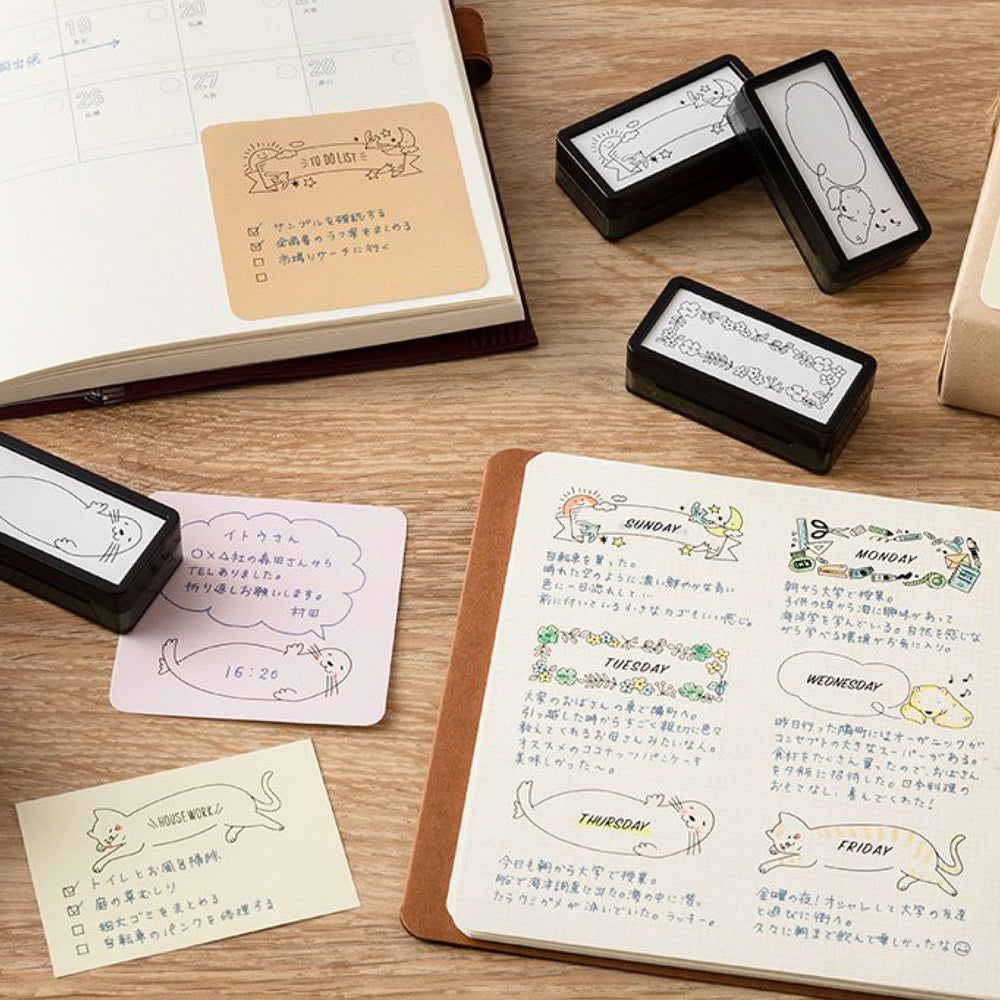 19
20
26
仏滅
27
大安
28
TO DO LIST
サンプルを確認する
企画書のラフ案をまとめる
市場リサーチに行く
イトウさん
○×△社の森田さんから
TELありました。
折り返しお願いします。
村田
16:20
HOUSE WORK
トイレとお風呂掃除
庭の草むしり
粗大ゴミをまとめる
自転車のパンクを修理する
SUNDAY
自転車を買った。
晴れた空のように濃い鮮やかな青い
色に一目惚れして…
前に付いている小さなカゴもいい感じ。
MONDAY
朝から大学で授業。
子供の頃から海に興味があって
海洋学を学んでいる。自然を感じな
がら学べる環境がお気に入り。
TUESDAY
大家のおばさんの車で隣町へ。
引っ越した時からすごく親切に色々
教えてくれるお母さんみたいな人。
オススメのココナッツパンケーキ
美味しかった〜。
WEDNESDAY
昨日行った隣町にはオーガニックが
コンセプトの大きなスーパーがある。
食材をたくさん買ったので、おばさん
を夕飯に招待した。日本料理の
おもてなし、喜んでくれた!
THURSDAY
今日も朝から大学で授業。
船で海洋調査に出た。海の中に潜っ
たらウミガメが泳いでいた。ラッキー。
FRIDAY
金曜の夜!オシャレして大学の友達
と遊びに街へ。
久々に朝まで飲んで楽しかったな